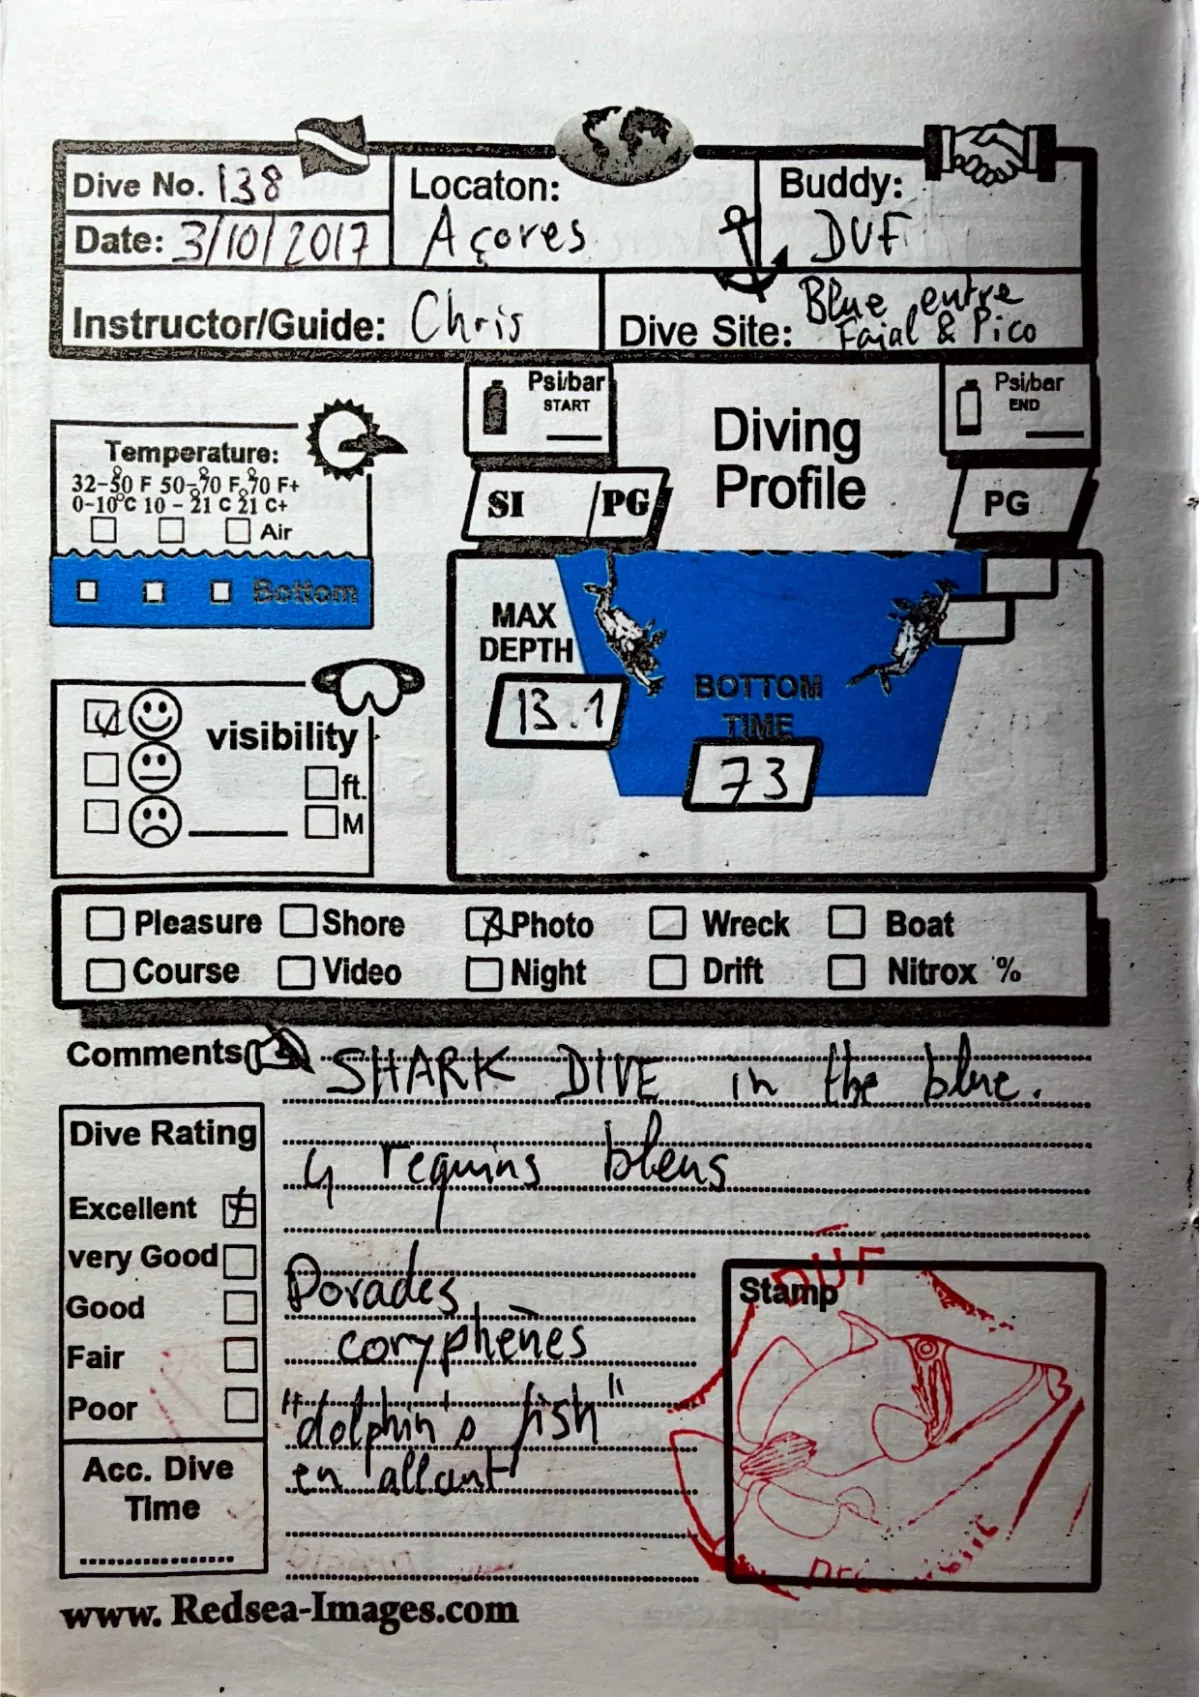 Dive No. 138
Date: 3/10/2017
Locaton:
Açores
Buddy:
DUF
Instructor/Guide: Chris
Dive Site: Blue entre
Faial & Pico
Psi/bar
START
Diving
Profile
Psi/bar
END
SI PG
PG
Temperature:
32-50 F 50-70 F 70 F+
0-10°C 10 - 21 C 21 C+
Air
Bottom
MAX
DEPTH
13.1
BOTTOM
TIME
73
visibility
ft.
M
Pleasure Shore Photo Wreck Boat
Course Video Night Drift Nitrox %
Comments SHARK DIVE in the blue.
4 requins bleus
Dorades
coryphènes
"dolphin's fish"
en allant
Dive Rating
Excellent
very Good
Good
Fair
Poor
Acc. Dive
Time
Stamp
DUF
www. Redsea-Images.com